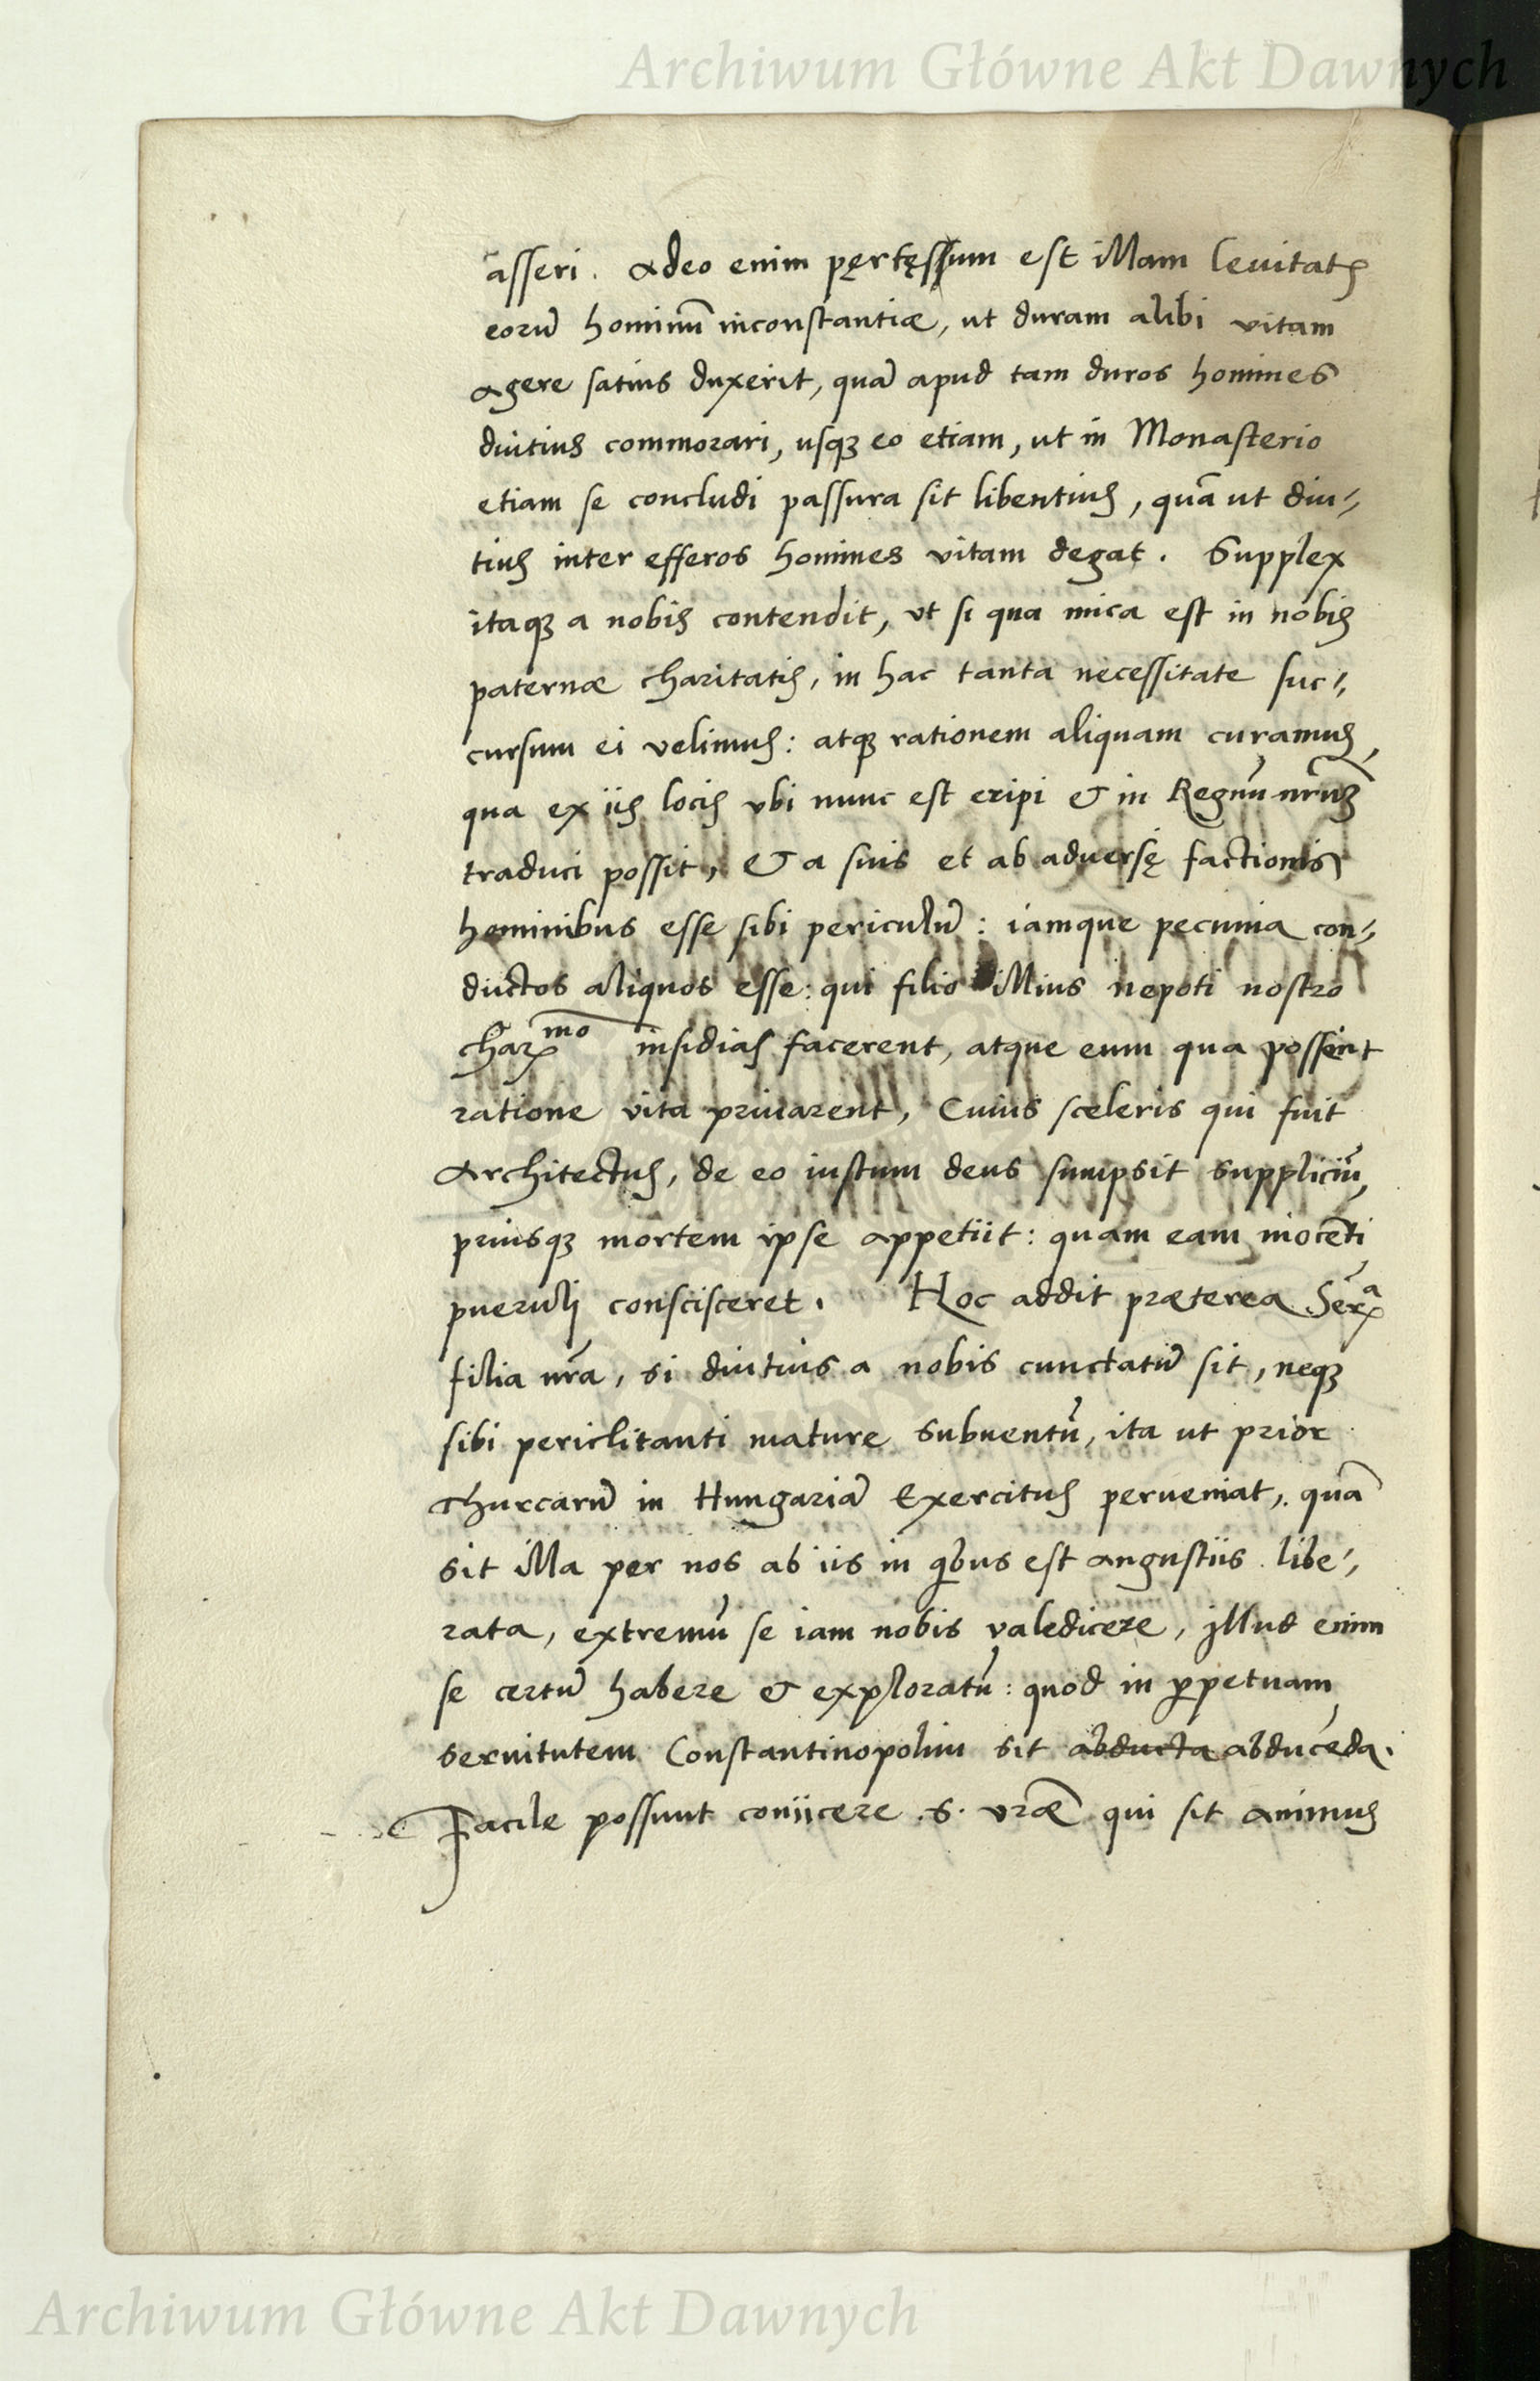 Archiwum Główne Akt Dawnych
asseri. Adeo enim pęrtęssum est illam leuitatẽ
eorũ hominũ inconstantiæ, ut duram alibi vitam
agere satius duxerit, quã apud tam duros homines
diutius commorari, usqꝫ eo etiam, ut in Monasterio
etiam se concludi passura sit libentius, quã ut diu-
tius inter efferos homines vitam degat. Supplex
itaqꝫ a nobis contendit, vt si qua mica est in nobis
paternæ charitatis, in hac tanta necessitate suc-
cursum ei velimus: atqꝫ rationem aliquam curamus,
qua ex iis locis vbi nunc est eripi & in Regnũ nr̃ũ
traduci possit, & a suis et ab aduersę factionis
hominibus esse sibi periculũ: iamque pecunia con-
ductos aliquos esse: qui filio illius nepoti nostro
charmo insidias facerent, atque eum qua possent
ratione vita priuarent, Cuius sceleris qui fuit
Architectus, de eo iustum deus sumpsit suppliciũ,
priusqꝫ mortem ipse appetiit: quam eam inocẽti
pueruli conscisceret. Hoc addit præterea Serã
filia nr̃a, si diutius a nobis cunctatũ sit, neqꝫ
sibi periclitanti mature subuentũ, ita ut prior
Thurcarũ in Hungariã Exercitus perueniat, quã
sit illa per nos ab iis in qibus est angustiis libe-
rata, extremũ se iam nobis valedicere, illud enim
se certũ habere & exploratũ: quod in ꝑpetuam
seruitutem Constantinopolim sit abducta abducẽda.
Facile possunt coniicere .S. vr̃æ qui sit animus
Archiwum Główne Akt Dawnych